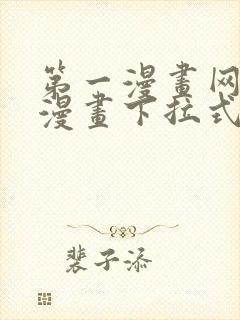 第一漫畫网
漫畫下拉式
裴子添